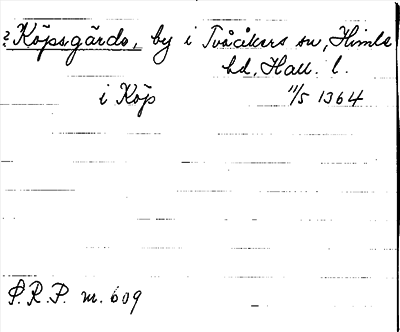 ? Köpsgårds, by i Tvååkers sn, Himle
hd, Hall. l.
i Köp 11/5 1364
S.R.P. nr. 609